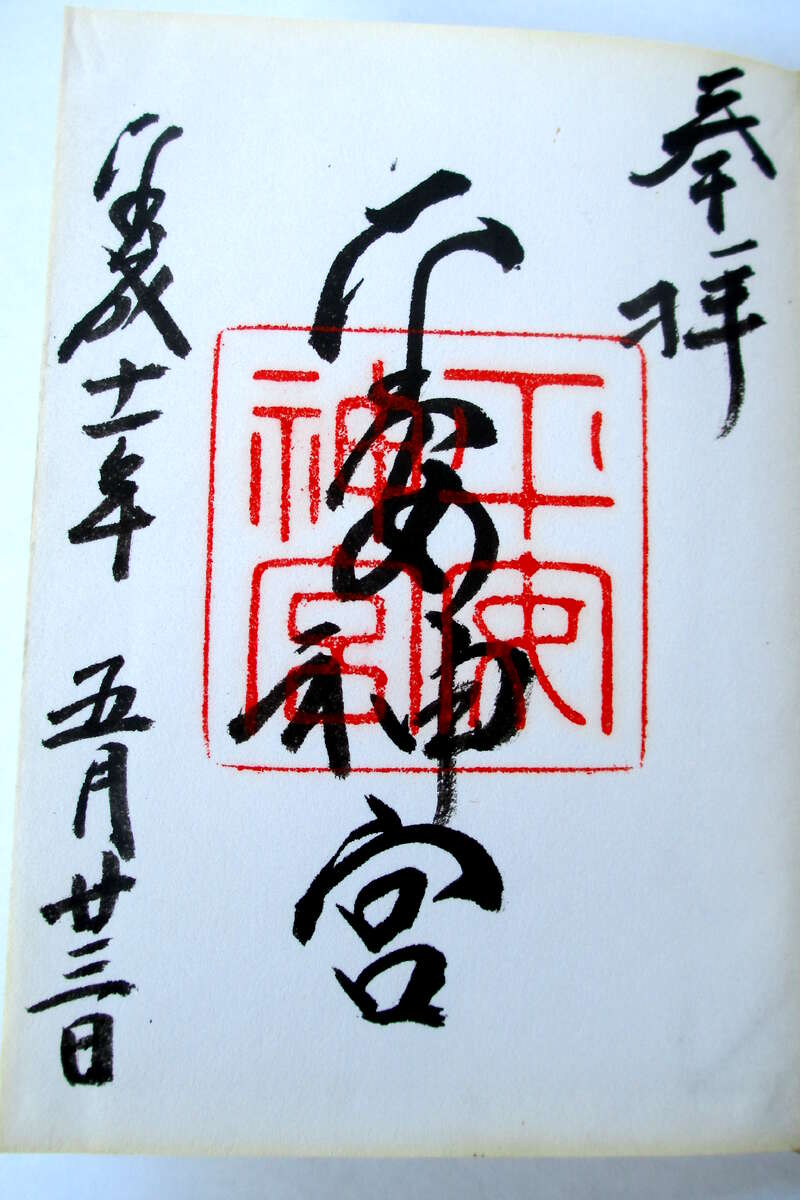 奉拝
平安神宮
平安
神宮
平成十一年 五月廿三日